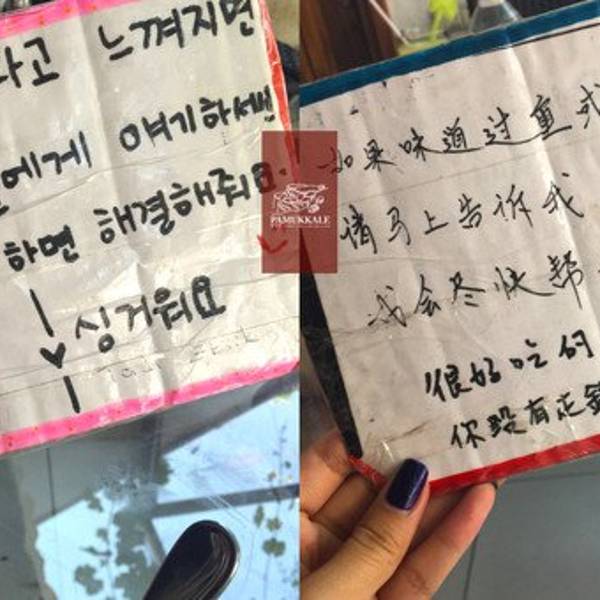 다고 느껴지면
에게 얘기하세번
하면 해결해줘요.
싱거워요
PAMUKKALE
如果味道过重或
请马上告诉我
我会尽快帮
很好吃的
你没有正错